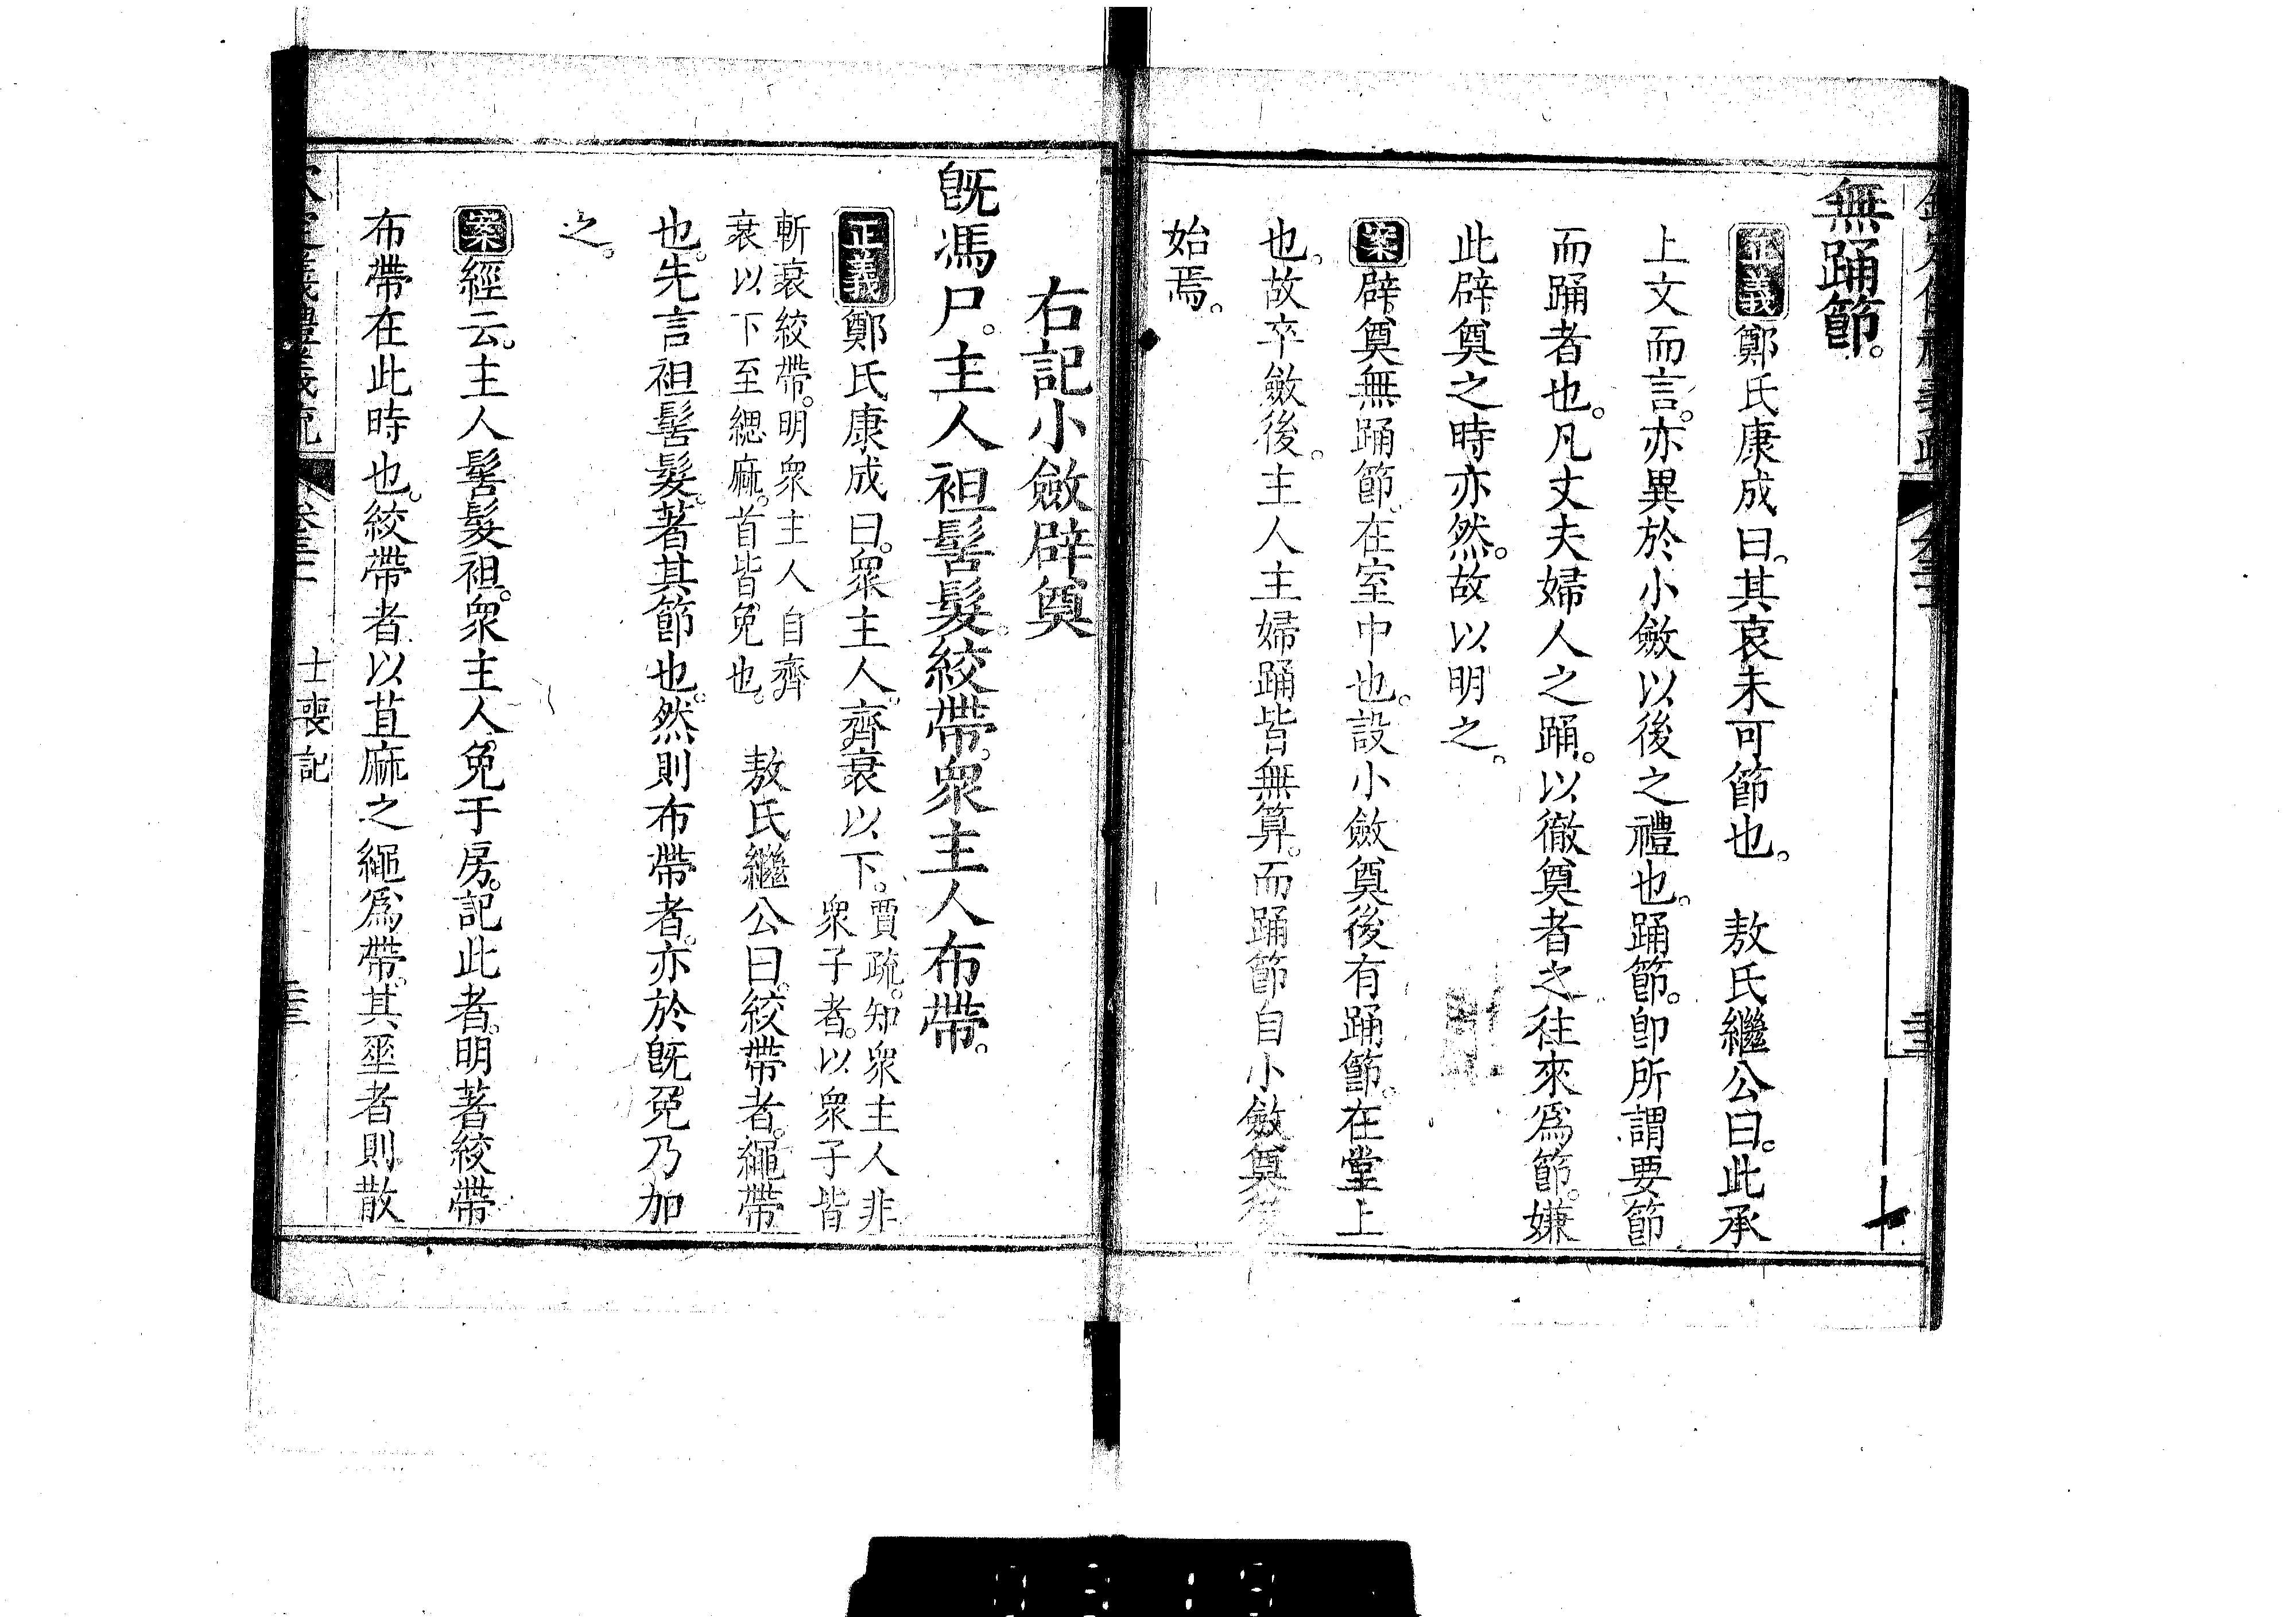 無踊節。
正義鄭氏康成曰。其哀未可節也。　敖氏繼公曰。此承
上文而言。亦異於小斂以後之禮也。踊節。卽所謂要節
而踊者也。凡丈夫婦人之踊。以徹奠者之往來爲節。嫌
此辟奠之時亦然。故以明之。
案辟奠無踊節。在室中也。設小斂奠後有踊節。在堂上
也。故卒斂後。主人主婦踊皆無算。而踊節自小斂奠後
始焉。
右記小斂辟奠
旣馮尸。主人袒髻髮。絞帶。衆主人布帶。
正義鄭氏康成曰。衆主人。齊衰以下。賈疏。知衆主人非
衆子者。以衆子皆
斬衰絞帶。明衆主人自齊
衰以下至緦麻。首皆免也。　敖氏繼公曰。絞帶者。繩帶
也。先言袒髻髮。著其節也。然則布帶者。亦於旣免乃加
之。
案經云。主人髻髮袒。衆主人免于房。記此者。明著絞帶
布帶在此時也。絞帶者以苴麻之繩爲帶。其垂者則散
士喪記